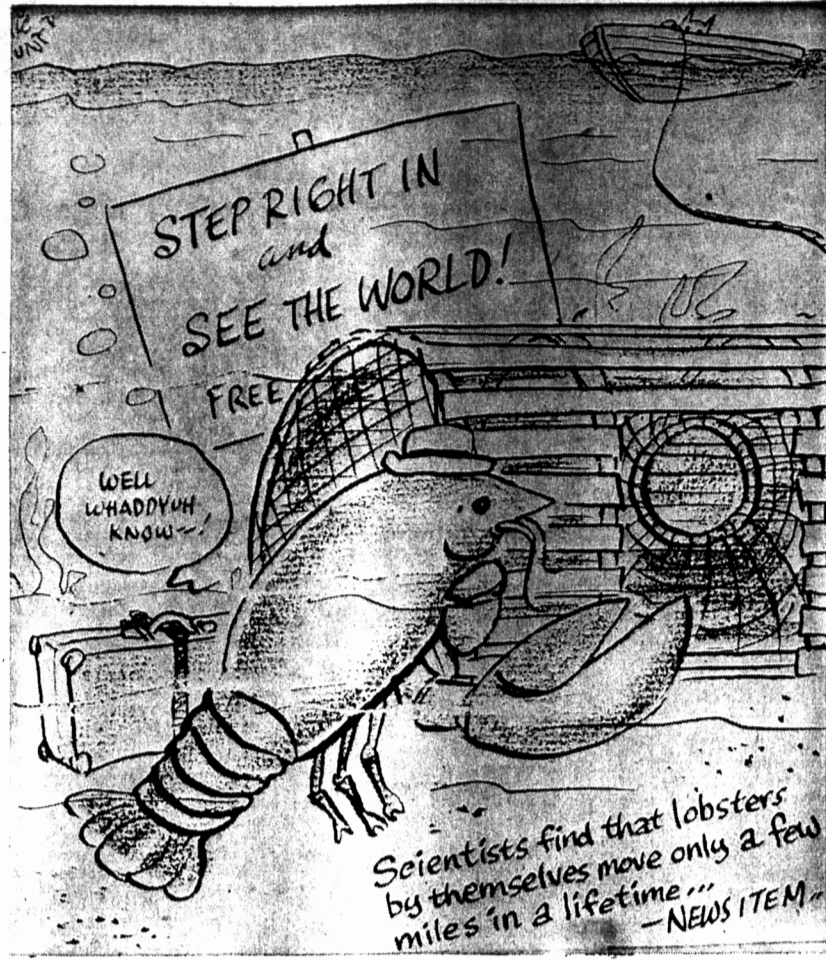 STEP RIGHT IN
and
SEE THE WORLD!
FREE
WELL
WHADDYUH
KNOW~!
Scientists find that lobsters
by themselves move only a few
miles in a lifetime...
—NEWS ITEM..